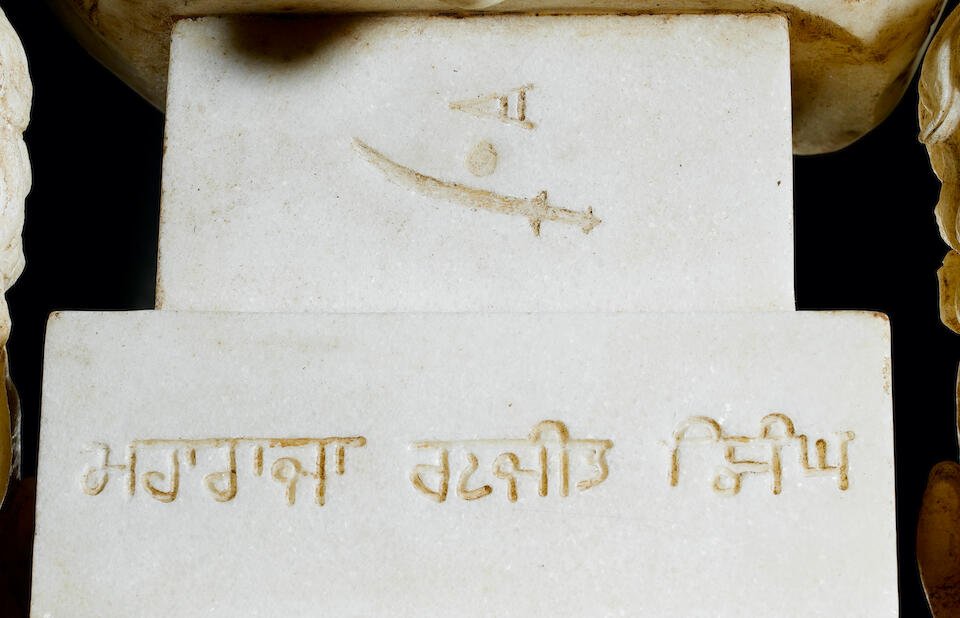 ਮਹਾਰਾਜਾ ਰਣਜੀਤ ਸਿੰਘ